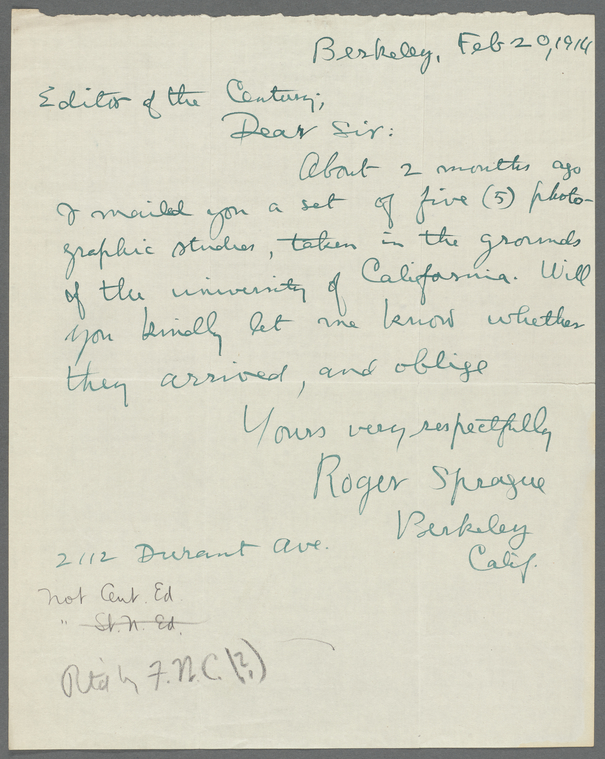 Berkeley, Feb 20, 1914
Editor of the Century;
Dear Sir:
About 2 months ago
I mailed you a set of five (5) photo-
graphic studies, taken in the grounds
of the university of California. Will
you kindly let me know whether
they arrived, and oblige
Yours very respectfully
Roger Sprague
Berkeley
Calif.
2112 Durant Ave.
Not Cent. Ed.
" St. N. Ed.
Rtd by F.N.C. (?)